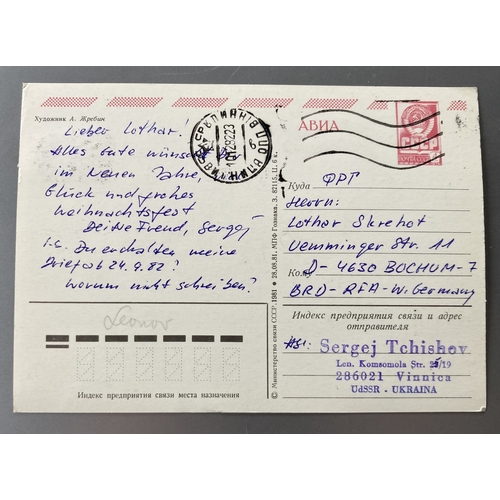 Художник А. Жребин
Lieber Lothar!
Alles Gute wünsche
im Neuen Jahre,
Glück und frohes
Weihnachtsfest
Deine Freund, Sergej
Du erhalten meine
Brief ab 24.9.82?
Warum nicht schreiben?
Leonov
Индекс предприятия связи места назначения
© Министерство связи СССР. 1981 • 28.08.81. МПФ Гознака. З. 82115. Ц. 6 к.
АВИА
Куда ФРГ
Herrn:
Lothar Skrehot
Uemminger Str. 11
Кому D-4630 BOCHUM-7
BRD-RFA-W. Germany
Индекс предприятия связи и адрес
отправителя
Sergej Tchishov
Len. Komsomola Str. 25/19
286021 Vinnica
UdSSR - UKRAINA